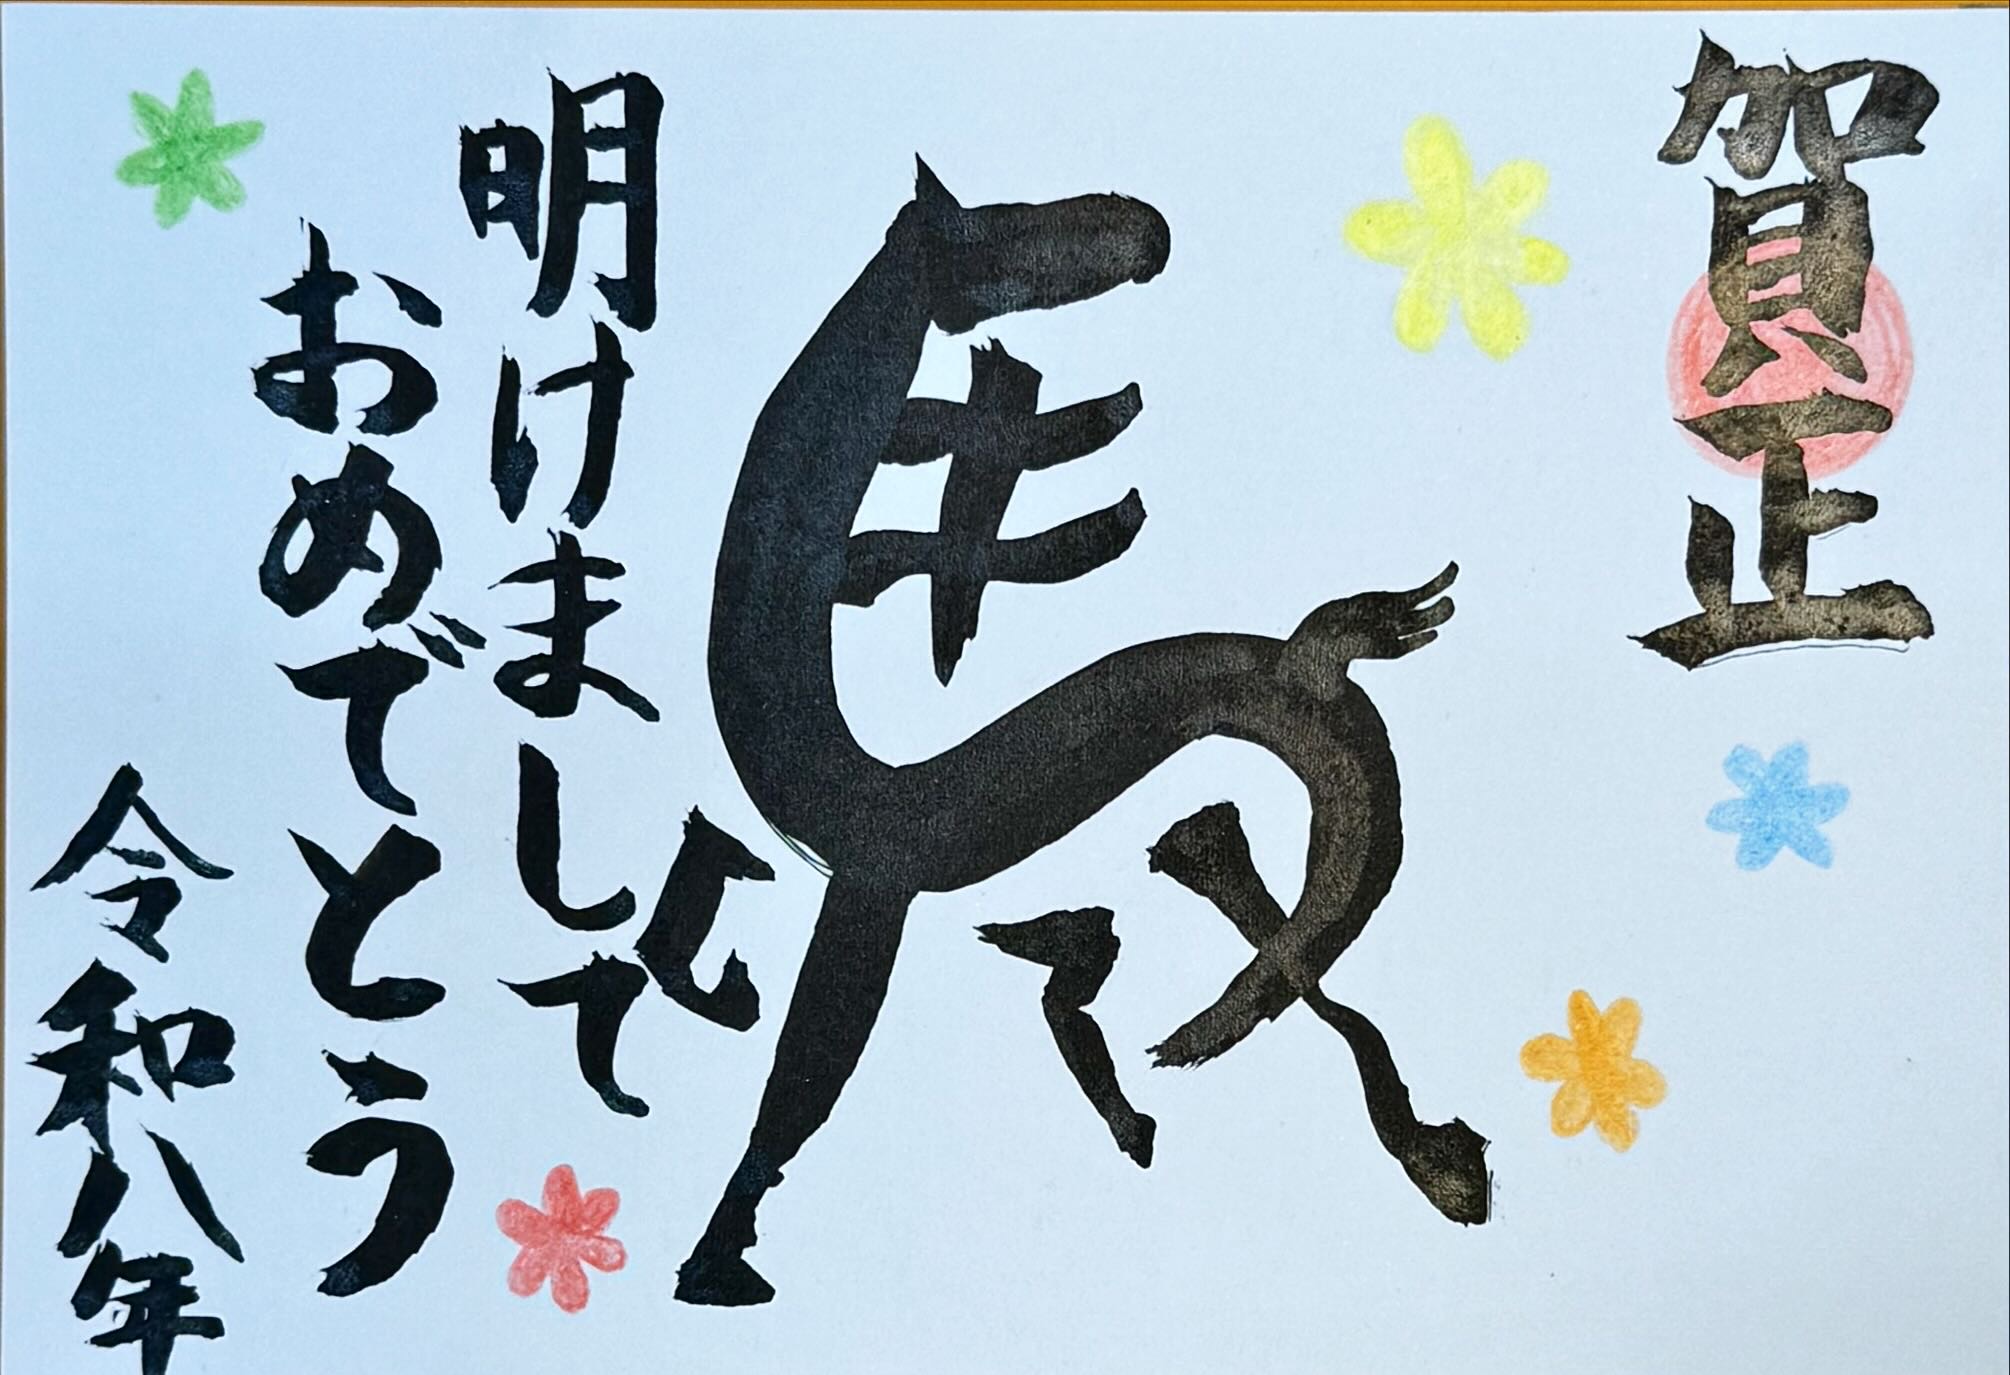 賀正
馬
明けまして
おめでとう
令和八年